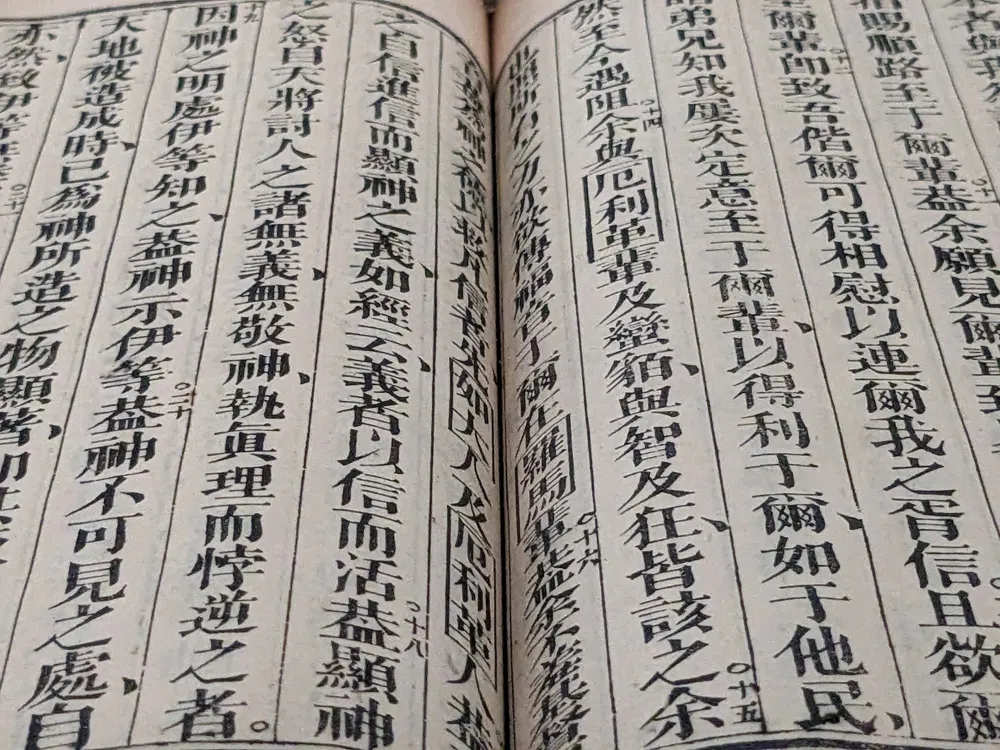 賜順路至于爾輩○十一蓋余願見爾輩
爾輩○十二即致吾偕爾可得相慰以連爾我之胥信。且欲爾
諸弟兄知我屢次定意至于爾輩、以得利于爾、如于他民、
然至今遇阻○十四余與厄利革輩及蠻貊、與智及狂、皆該之○十五余
亦欲傳福音于爾在羅馬輩○十六蓋余不羞
信者如大人及厄利革人蓋
之自信進信而顯神之義、如經云、義者以信而活○十八蓋顯神
之怒自天將討人之諸無義、無敬神、執眞理而悖逆之者。
十九因神之明處伊等知之、蓋神示伊等○二十蓋神不可見之處、自
天地被造成時、已爲神所造之物顯著、即
亦然、致伊等